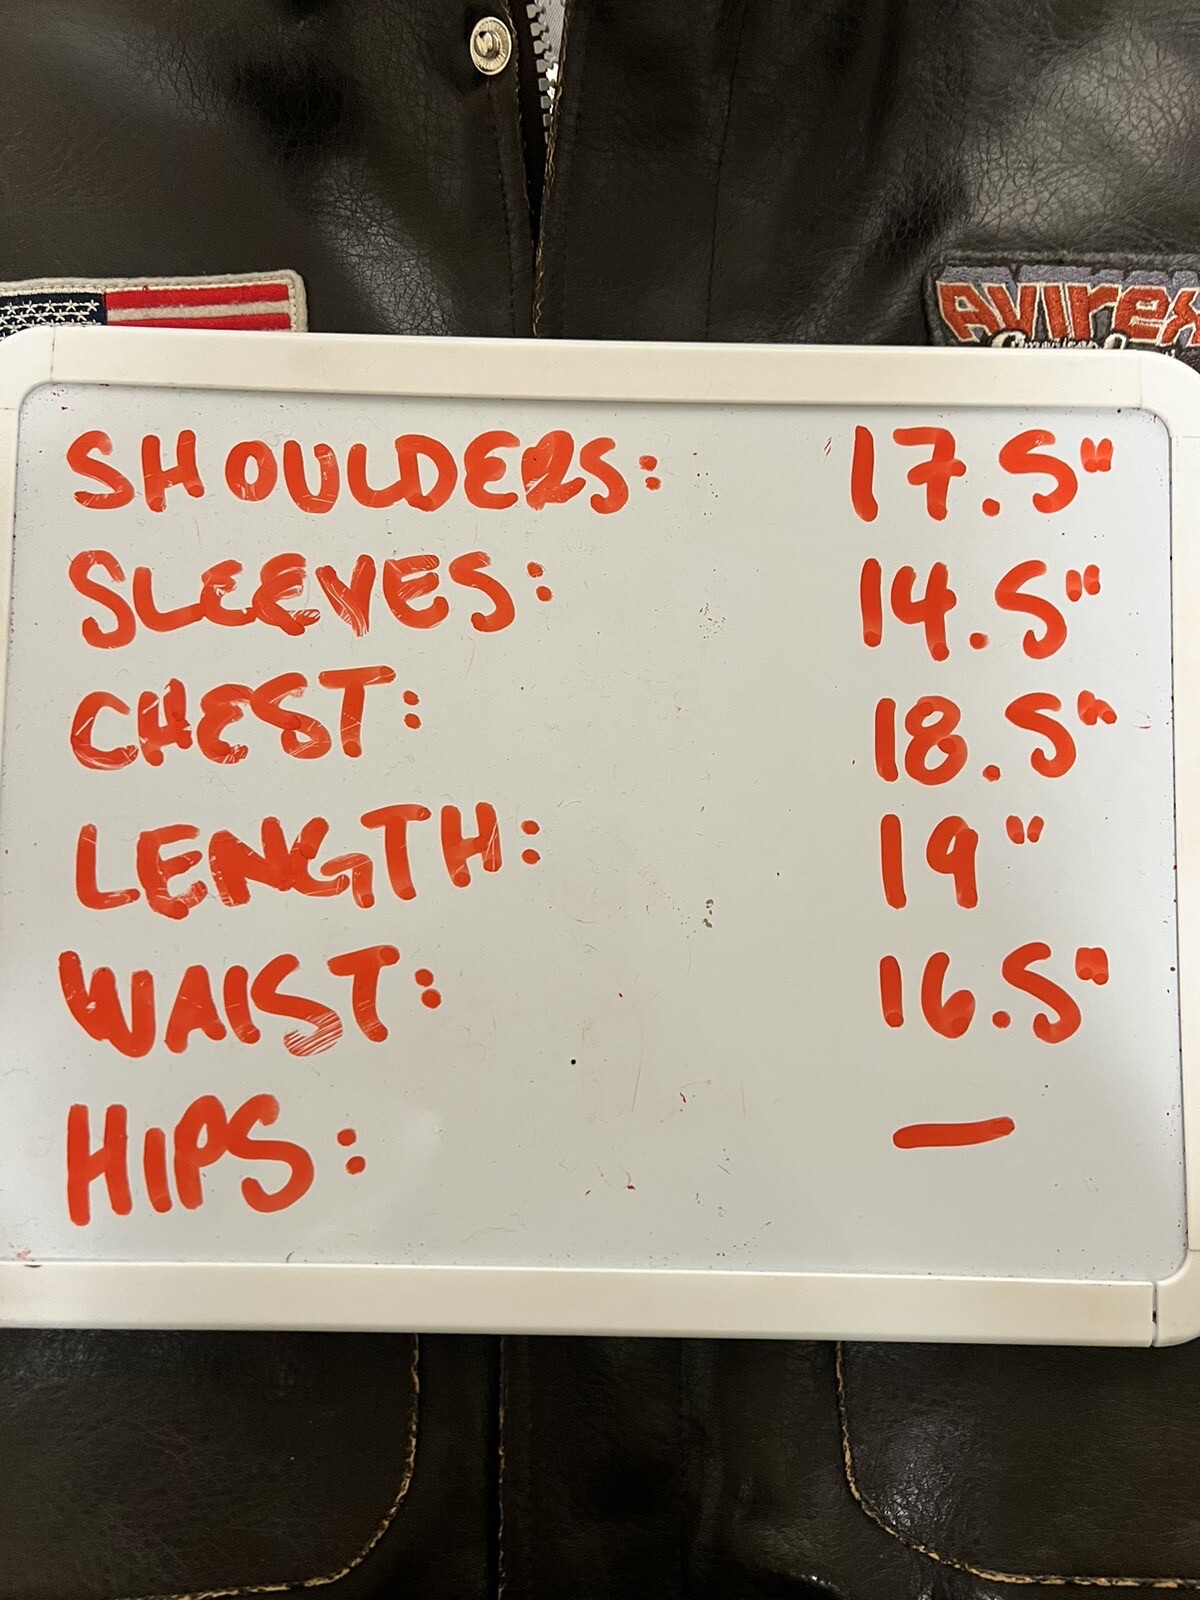 AVIREX
SHOULDERS: 17.5"
SLEEVES: 14.5"
CHEST: 18.5"
LENGTH: 19"
WAIST: 16.5"
HIPS: —